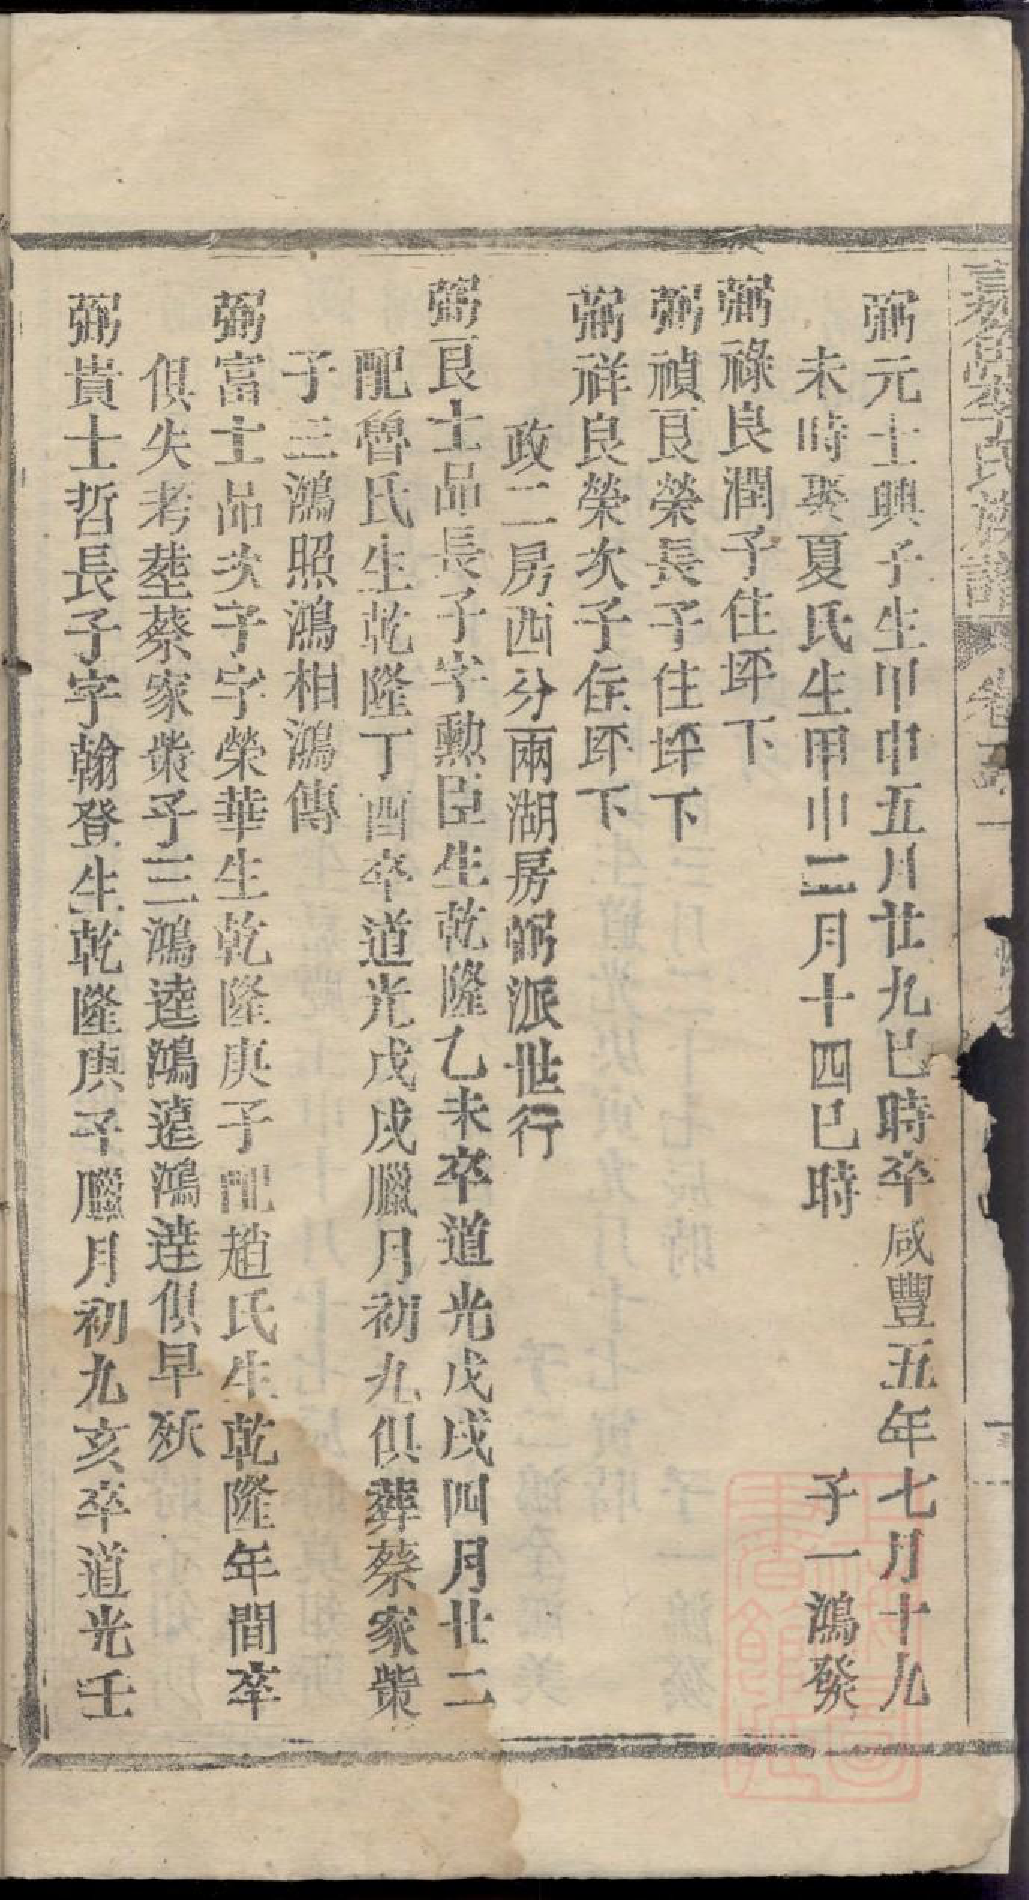 嘉魚李氏族譜 卷五十
弼元士興子生甲申五月廿九巳時卒咸豐五年七月十九
未時娶夏氏生甲申二月十四巳時 子一鴻發
弼祿良潤子住坪下
弼禎良榮長子住坪下
弼祥良榮次子住坪下
政二房西分兩湖房弼派世行
弼良士品長子字勲臣生乾隆乙未卒道光戊戌四月廿二
配魯氏生乾隆丁酉卒道光戊戌臘月初九俱葬蔡家嘴
子三鴻照鴻相鴻傳
弼富士品次子字榮華生乾隆庚子配趙氏生乾隆年間卒
俱失考塟蔡家嘴子三鴻逵鴻遠鴻達俱早殀
弼貴士哲長子字翰登生乾隆庚子臘月初九亥卒道光壬